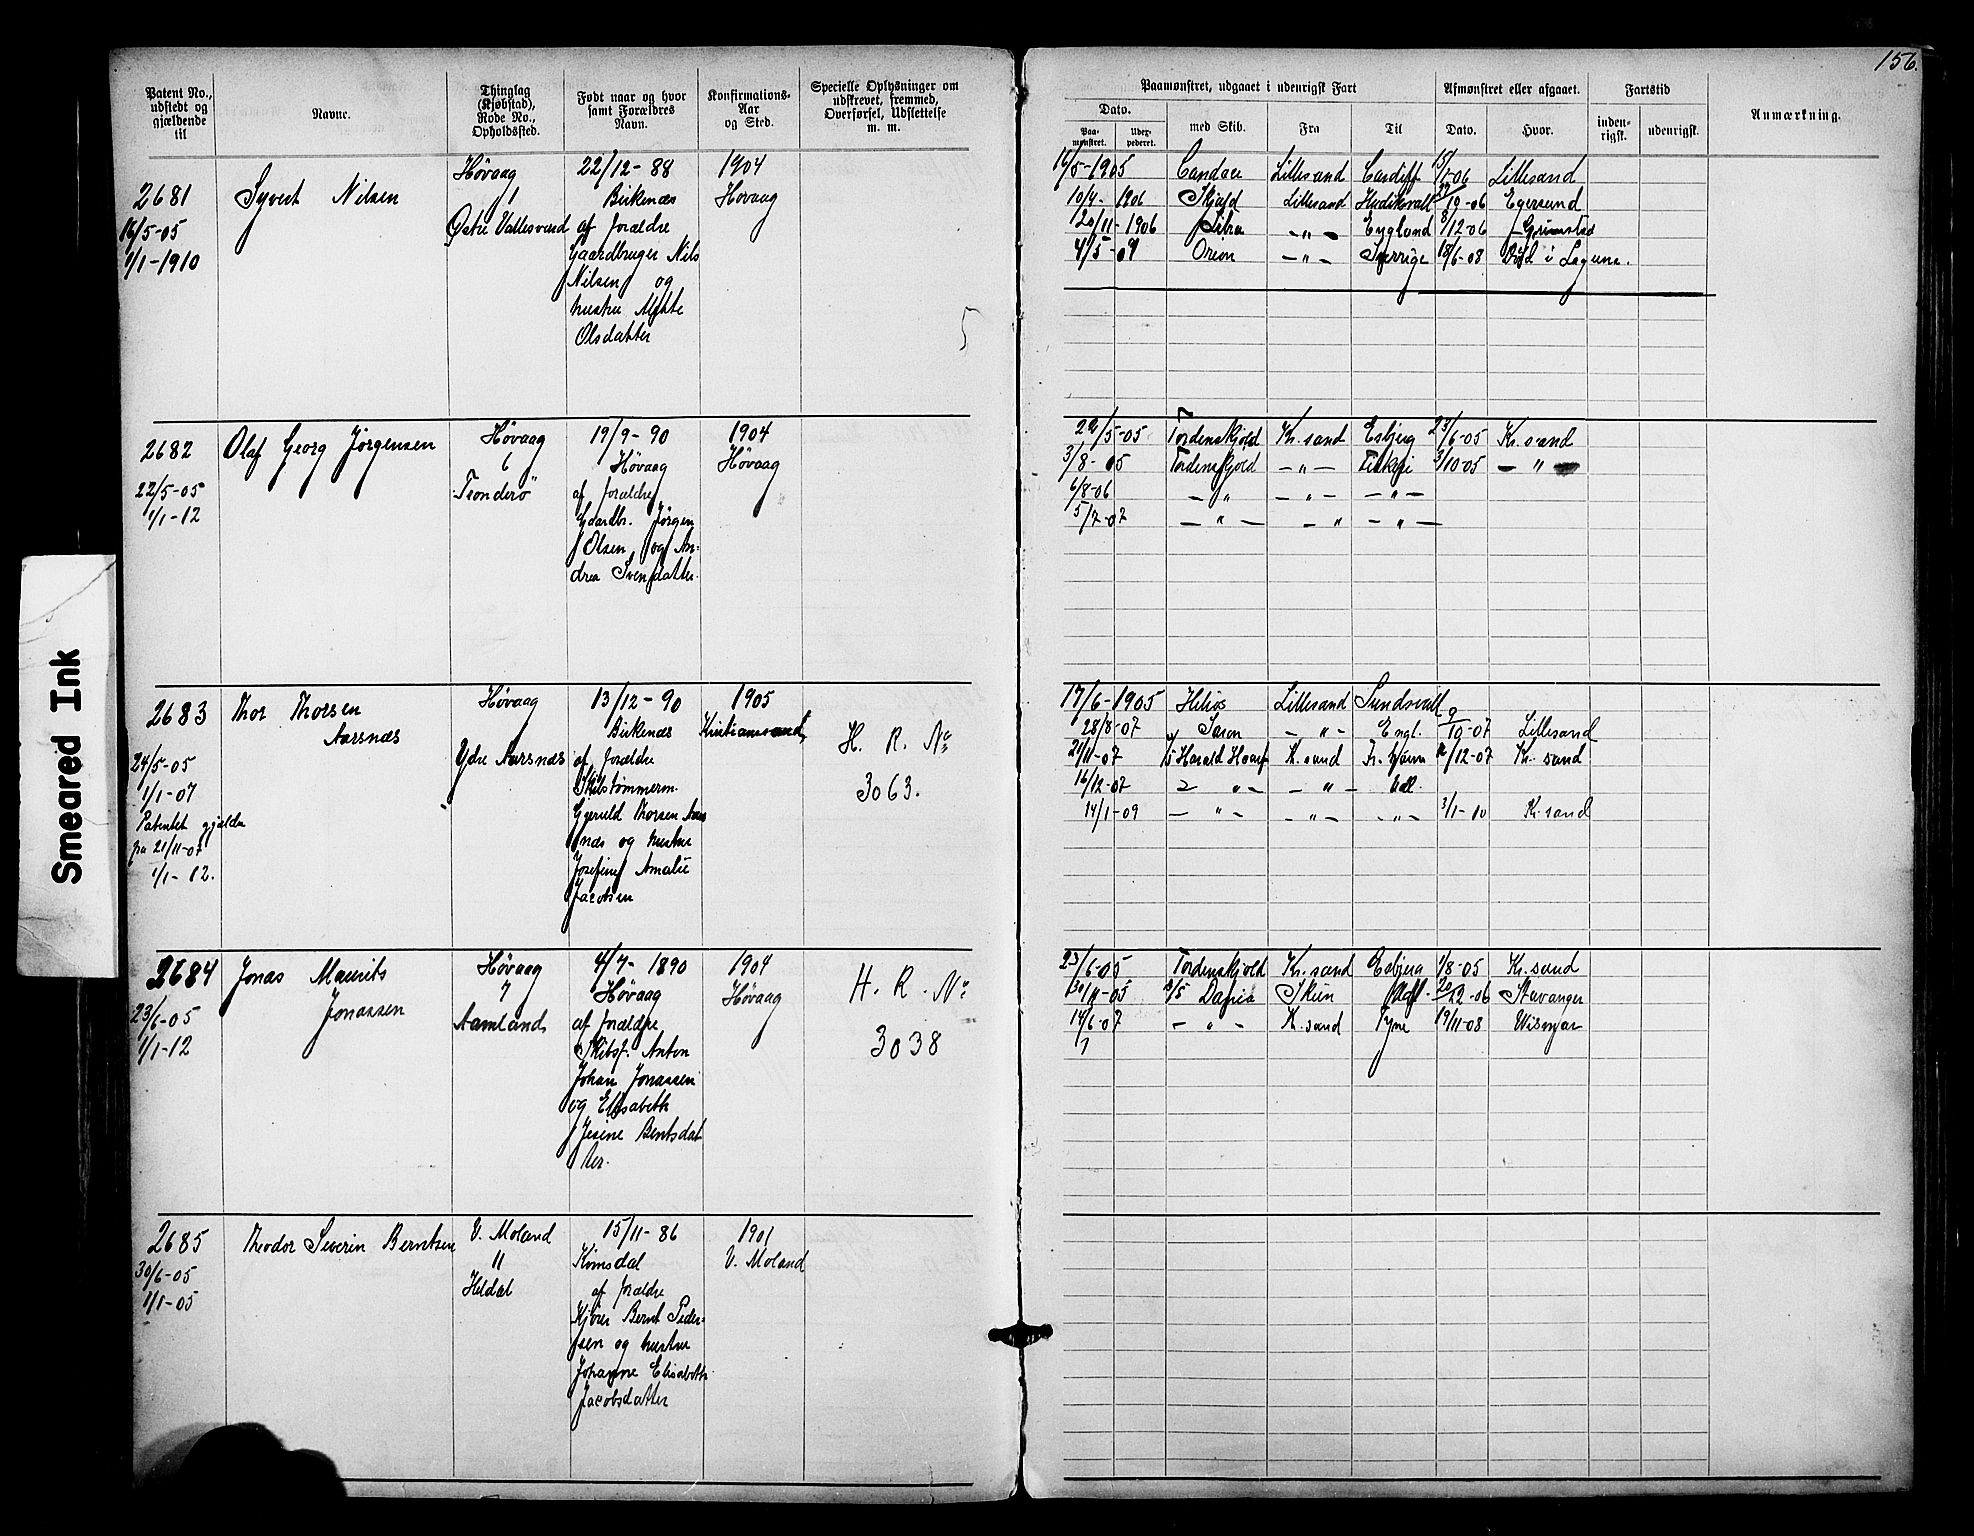 156.
Patent No., udstedt og gjældende til
Navne.
Thinglag (Kjøbstad), Rode No., Opholdssted.
Født naar og hvor samt Forældres Navn.
Konfirmations-Aar og Sted.
Specielle Oplysninger om udskrevet, fremmed, Overførsel, Udslettelse m. m.
Paamønstret, udgaaet i udenrigsk Fart
Dato.
Paa-mønstret.
Uder-pederet.
med Skib.
Fra
Til
Afmønstret eller afgaaet.
Dato.
Hvor.
Fartstid
inden-rigsk.
udenrigsk.
Anmærkning.
2681
16/5-05
1/1-1910
Syvert Nilsen
Høvaag
1
Østre Vallesverd
22/12-88
Birkenæs
af forældre
Gaardbruger Nils
Nilsen og
hustru
Olsdatter
1904
Høvaag
5
16/5-1905 Candace Lillesand Cardiff 15/1-06 Lillesand
10/4-1906 Skjold Lillesand Hudiksvall Egersund
20/11-1906 Libra — " — England 8/12-06 Grimstad
4/5-07 Orion — " — Sverrige 18/6-08 Død i Laguna.
2682
22/5-05
1/1-12
Olaf Georg Jørgensen
Høvaag
6
Trønderø
19/9-90
Høvaag
af forældre
Gaardbr. Jørgen
Olsen og An-
drea Svensdatter.
1904
Høvaag
22/5-05 Tordenskjold Kr. sand Esbjerg 23/6-05 Kr. sand
3/8-05 Tordenskjold — " — 3/10-05 — " —
6/8-06 — " — " — " —
5/7-07 — " — " — " —
2683
24/5-05
1/1-07
Patentet gjælder
fra 21/11-07
1/1-12.
Thor Thorsen
Aarsnæs
Høvaag
Ydre Aarsnæs
13/12-90
Birkenæs
af forældre
Skibstømmerm.
Gjeruld Thorsen Aars
næs og hustru
Josefine Amalie
Jacobsen
1905
Kristiansand
H. R. No
3063.
17/6-1905 Helios Lillesand Sundsvall
28/8-07 Saron — " — Engl. 9/10-07 Lillesand
21/11-07 D/S Harald Haarf K. sand 12/12-07 Kr. sand
16/12-07 — " — " — Udl.
14/1-09 — " — " — " — 3/1-10 Kr. sand
2684
23/6-05
1/1-12
Jonas Maurits
Jonassen
Høvaag
7
Aamland
4/7-1890
Høvaag
af forældre
Skibsf. Anton
Johan Jonassen
og Elisabeth
Jesine Bentsdat
ter.
1904
Høvaag
H. R. No
3038
23/6-05 Tordenskjold Kr. sand Esbjerg 1/8-05 Kr. sand
30/11-05 D/S Skien 20/12-06 Stavanger
14/6-07 — " — K. sand Tyne 19/11-08 Wismar
2685
30/6-05
1/1-05
Theodor Severin Berntsen
V. Moland
11
Heldal
15/11-86
Kømsdal
af forældre
Kjører Bernt Peder-
sen og hustru
Johanne Elisabeth
Jacobsdatter
1901
V. Moland
Smeared Ink